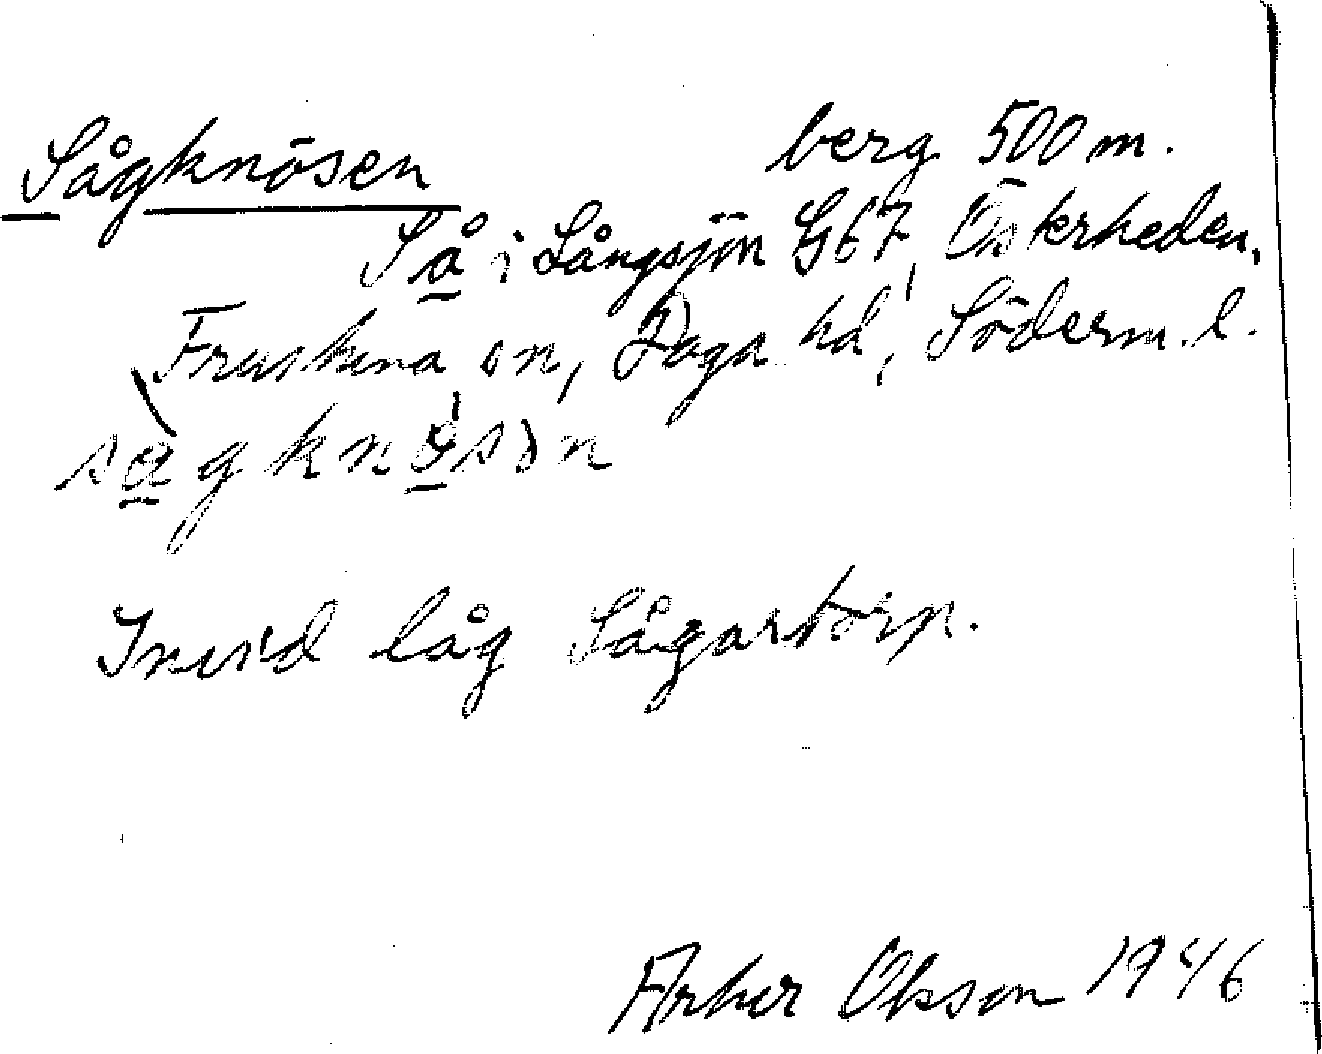 Sågknösen berg 500 m.
Så i Långsjön G67, Österheden,
Frustuna sn, Daga hd, Söderm. l.
sågknösən
Invid låg Sågartorp.
Arher Olsson 1946